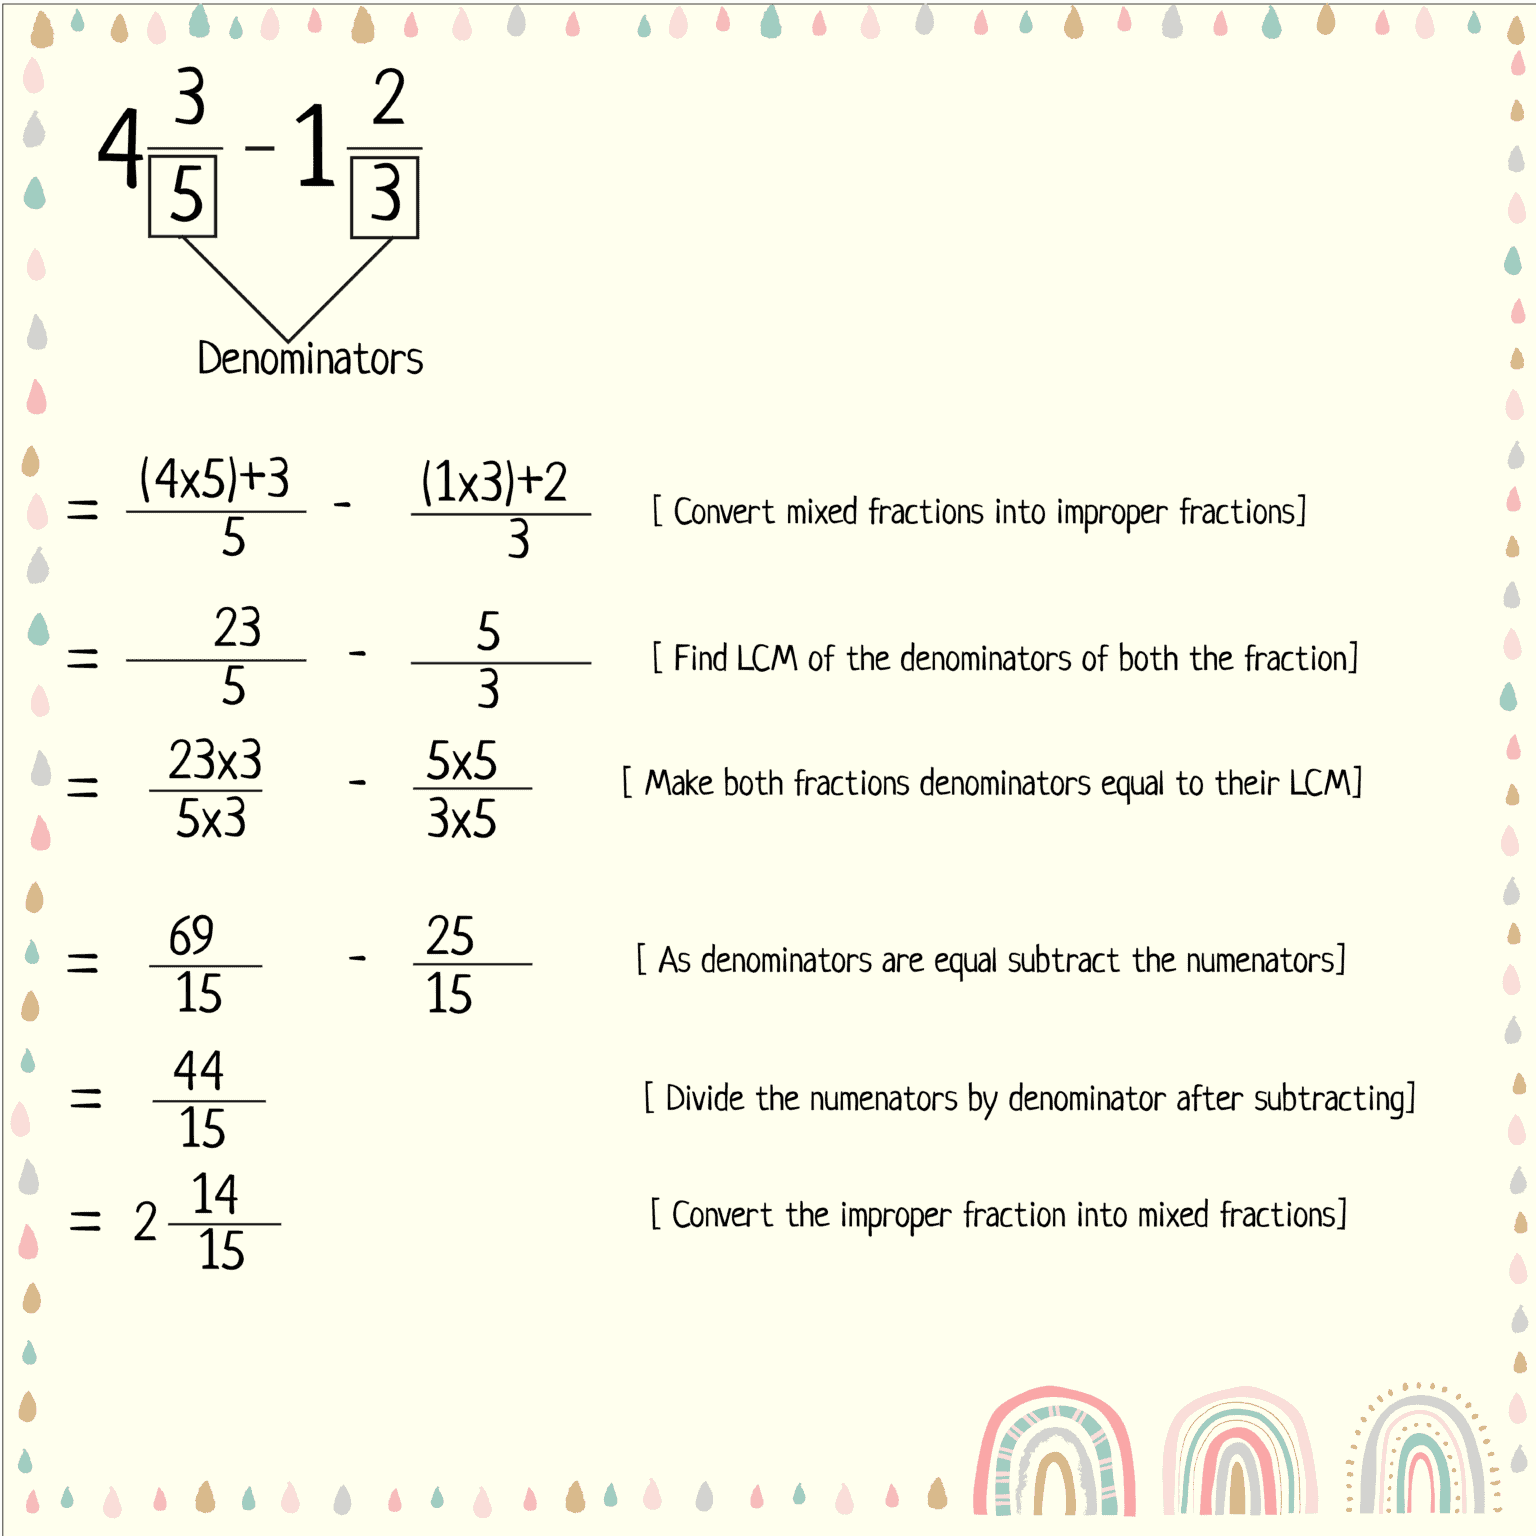 4 3/5 - 1 2/3
Denominators
= (4x5)+3/5 - (1x3)+2/3 [ Convert mixed fractions into improper fractions]
= 23/5 - 5/3 [ Find LCM of the denominators of both the fraction]
= 23x3/5x3 - 5x5/3x5 [ Make both fractions denominators equal to their LCM]
= 69/15 - 25/15 [ As denominators are equal subtract the numenators]
= 44/15 [ Divide the numenators by denominator after subtracting]
= 2 14/15 [ Convert the improper fraction into mixed fractions]